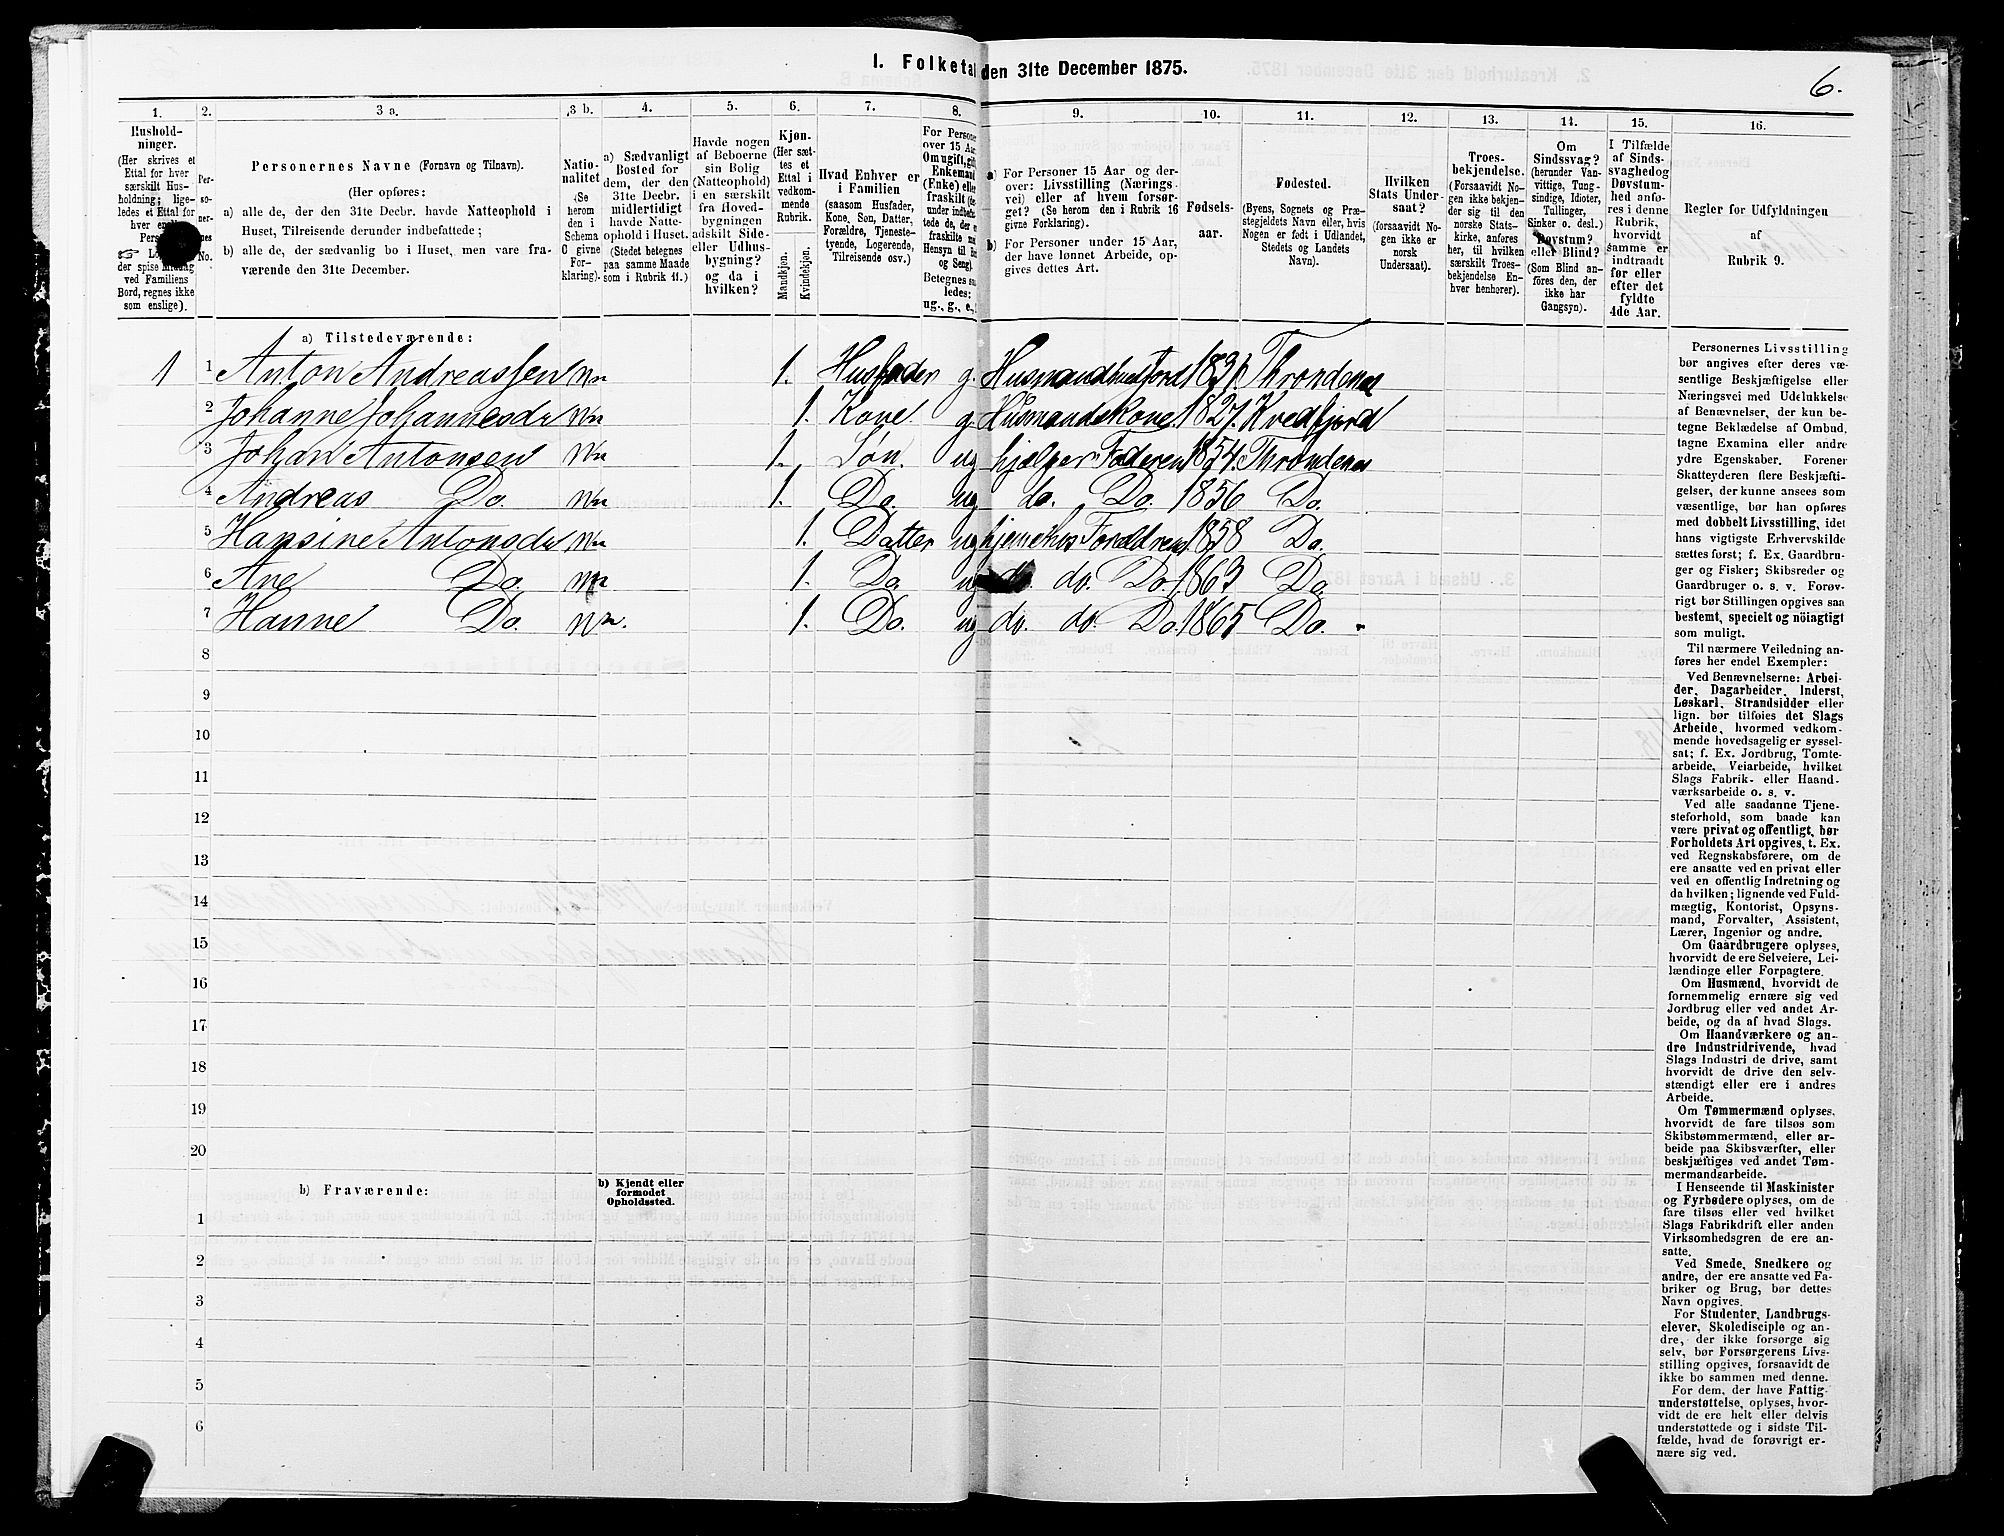 I. Folketal den 31te December 1875.
6.
1. 2. 3 a. 3 b. 4. 5. 6. 7. 8. 9. 10. 11. 12. 13. 14. 15. 16.
Hushold-
ninger.
(Her skrives et
Ettal for hver
særskilt Hus-
holdning; lige-
ledes et Ettal for
der spise Middag
ved Familiens
Bord, regnes ikke
som enslige).
Per-
so-
ner-
nes
No.
Personernes Navne (Fornavn og Tilnavn).
(Her opføres:
a) alle de, der den 31te Decbr. havde Natteophold i
Huset, Tilreisende derunder indbefattede;
b) alle de, der sædvanlig bo i Huset, men vare fra-
værende den 31te December.
Natio-
nalitet
(Se
herom
den i
Schema
givne
For-
klaring).
a) Sædvanligt
Bosted for
dem, der den
31te Decbr.
midlertidigt
havde Natte-
ophold i Huset.
(Stedet betegnes
paa samme Maade
som i Rubrik 11.)
Havde nogen
af Beboerne
sin Bolig
(Natteophold)
i en særskilt
fra Hoved-
bygningen
adskilt Side-
eller Udhus-
bygning?
og da i
hvilken?
Kjøn.
(Her sæt-
tes et
Ettal i
vedkom-
mende
Rubrik.
Mandkjøn.
Kvindekjøn.
Hvad Enhver er
i Familien
(saasom Husfader,
Kone, Søn, Datter,
Forældre, Tjeneste-
tyende, Logerende,
Tilreisende osv.)
For Personer
over 15 Aar:
Om ugift, gift,
Enkemand
(Enke) eller
fraskilt
ug., g., e.,
a) For Personer 15 Aar og der-
over: Livsstilling (Nærings-
vei) eller af hvem forsør-
get? (Se herom den i Rubrik 16
givne Forklaring).
b) For Personer under 15 Aar,
der have lønnet Arbeide, op-
gives dettes Art.
Fødsels-
aar.
Fødested.
(Byens, Sognets og Præ-
stegjeldets Navn eller, hvis
Nogen er født i Udlandet,
Stedets og Landets
Navn).
Hvilken
Stats Under-
saat?
(forsaavidt No-
gen ikke er
norsk
Undersaat).
Troes-
bekjendelse.
(Forsaavidt No-
gen ikke bekjen-
der sig til den
norske Stats-
kirke, anføres
her, til hvilken
særskilt Troes-
bekjendelse En-
hver henhører).
Om
Sindssvag?
(herunder Van-
vittige, Tung-
sindige, Idioter,
Tullinger,
Sinker o. desl.)
Døvstum?
eller Blind?
(Som Blind an-
føres den, der
ikke har
Gangsyn).
I Tilfælde
af Sinds-
svaghed og
Døvstum-
hed anfø-
res i denne
Rubrik,
hvorvidt
samme er
indtraadt
før eller
efter det
fyldte
4de Aar.
Regler for Udfyldningen
af
Rubrik 9.
a) Tilstedeværende:
1 1 Anton Andreassen Nn 1. Husfader g. 1831. Throndenæs
2 Johanne Johannesdr Nn 1. Kone g. Husmandskone 1827. Kvedfjord
3 Johan Antonsen Nn 1. Søn. ug hjælper Faderen 1854. Throndenæs
4 Andreas Do. Nn 1. Do. ug do. Do. 1856 Do.
5 Hansine Antonsdr Nn 1. Datter ug 1858 Do.
6 Ane Do. Nn 1. Do. ug do. do. Do. 1863 Do.
7 Hanne Do. Nn. 1. Do. ug do. do. Do. 1865 Do.
8
9
10
11
12
13
14
15
16
17
18
19
20
b) Fraværende:
b) Kjendt eller
formodet
Opholdssted.
1
2
3
4
5
6
Personernes Livsstilling
bør angives efter deres væ-
sentlige Beskjæftigelse eller
Næringsvei med Udelukkelse
af Benævnelser, der kun be-
tegne Beklædelse af Ombud,
tagne Examina eller andre
ydre Egenskaber. Forener
Skatteyderen flere Beskjæfti-
gelser, der kunne ansees som
væsentlige, bør han opføres
med dobbelt Livsstilling, idet
hans vigtigste Erhvervskilde
sættes først; f. Ex. Gaardbru-
ger og Fisker; Skibsreder og
Gaardbruger o. s. v. Forøv-
rigt bør Stillingen opgives saa
bestemt, specielt og nöiagtigt
som muligt.
Til nærmere Veiledning an-
føres her endel Exempler:
Ved Benævnelserne: Arbei-
der, Dagarbeider, Inderst,
Løskarl, Strandsidder eller
lign. bør tilføies det Slags
Arbeide, hvormed vedkom-
mende hovedsagelig er syssel-
sat; f. Ex. Jordbrug, Tomte-
arbeide, Veiarbeide, hvilket
Slags Fabrik- eller Haand-
værksarbeide o. s. v.
Ved alle saadanne Tjene-
steforhold, som baade kan
være privat og offentligt, bør
Forholdets Art opgives, t. Ex.
ved Regnskabsførere, om de
ere ansatte ved en privat eller
ved en offentlig Indretning og
da hvilken; lignende ved Fuld-
mægtig, Kontorist, Opsyns-
mand, Forvalter, Assistent,
Lærer, Ingeniør og andre.
Om Gaardbrugere oplyses,
hvorvidt de ere Selveiere, Lei-
lændinge eller Forpagtere.
Om Husmænd, hvorvidt de
fornemmelig ernære sig ved
Jordbrug eller ved andet Ar-
beide, og da af hvad Slags.
Om Haandværkere og an-
dre Industridrivende, hvad
Slags Industri de drive, samt
hvorvidt de drive den selv-
stændigt eller ere i andres
Arbeide.
Om Tømmermænd oplyses,
hvorvidt de fare tilsøs som
Skibstømmermænd, eller ar-
beide paa Skibsværfter, eller
beskjæftiges ved andet Tøm-
mermandsarbeide.
I Henseende til Maskinister
og Fyrbødere oplyses, om de
fare tilsøs eller ved hvilket
Slags Fabrikdrift eller anden
Virksomhedsgren de ere an-
satte.
Ved Smede, Snedkere og
andre, der ere ansatte ved Fa-
briker og Brug, bør dettes
Navn opgives.
For Studenter, Landbrugs-
elever, Skoledisciple og an-
dre, der ikke forsørge sig
selv, bør Forsørgerens Livs-
stilling opgives, forsaavidt de
ikke bo sammen med denne.
For dem, der have Fattig-
understøttelse, oplyses, hvor-
vidt de ere helt eller delvis
understøttede og i sidste Til-
fælde, hvad de forøvrigt er-
nære sig ved.